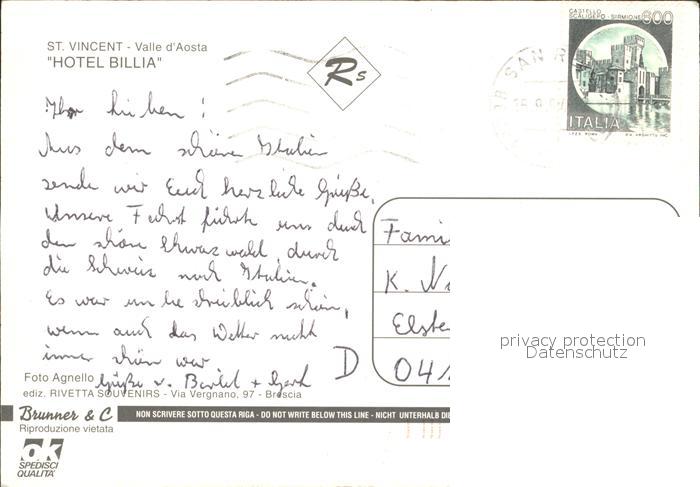 ST. VINCENT - Valle d'Aosta
"HOTEL BILLIA"
Rs
CASTELLO
SCALIGERO - SIRMIONE
600
ITALIA
I.P.Z.S. ROMA
SAN
Ihr lieben!
Aus dem schönen Italien
sende wir Euch herzliche Grüße.
Unsere Fahrt führte uns durch
den schöne Schwarzwald, durch
die Schweiz nach Italien.
Es war unbeschreiblich schön,
wenn auch das Wetter nicht
immer schön war
Grüße v. +
D
Fami
K. N
Elste
04
privacy protection
Datenschutz
Foto Agnello
ediz. RIVETTA SOUVENIRS - Via Vergnano, 97 - Brescia
Brunner & C
NON SCRIVERE SOTTO QUESTA RIGA - DO NOT WRITE BELOW THIS LINE - NICHT UNTERHALB DIE
Riproduzione vietata
ok
SPEDISCI
QUALITA'